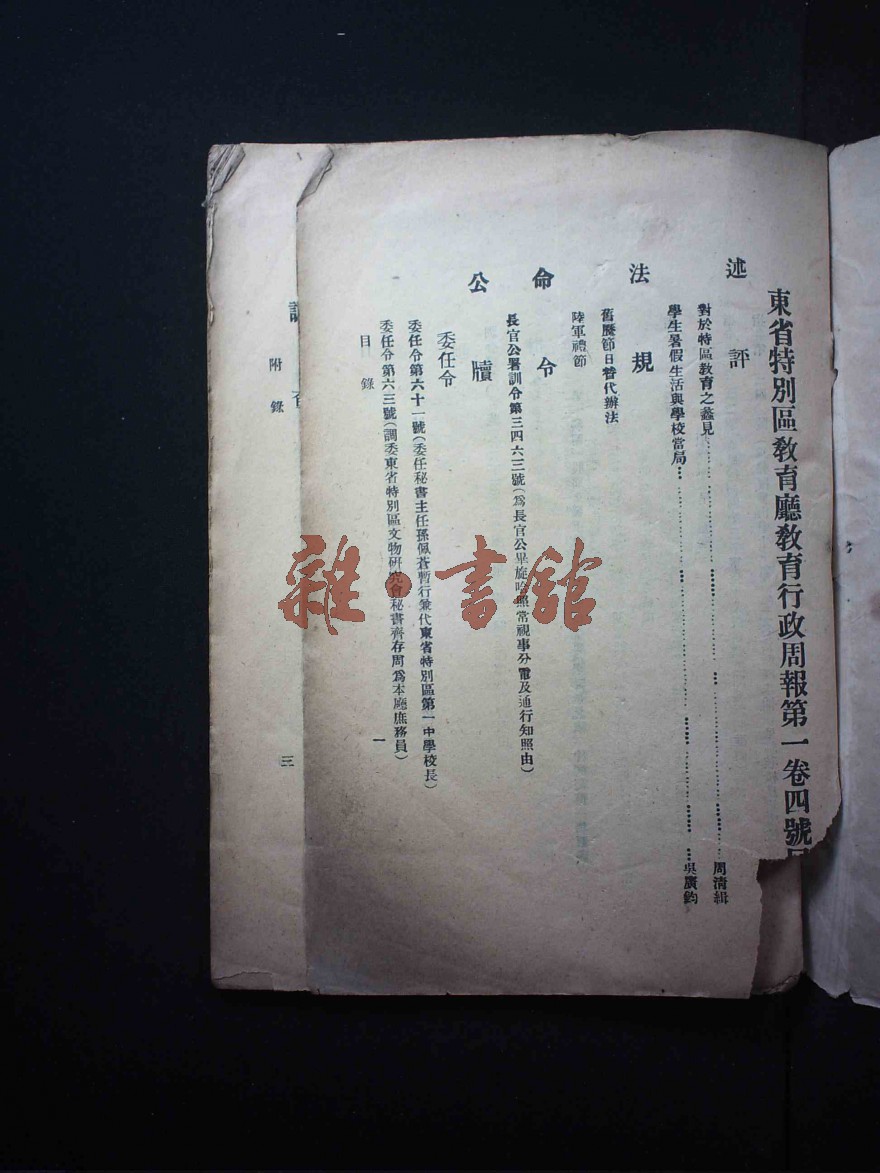 東省特別區敎育廳敎育行政周報第一卷四號
述評
對於特區敎育之蠡見………周淸緝
學生暑假生活與學校當局………吳廣鈞
法規
舊曆節日替代辦法
陸軍禮節
命令
長官公署訓令第三四六三號(爲長官公畢旋哈照常視事分電及通行知照由)
公牘
委任令
委任令第六十一號(委任秘書主任孫佩蒼暫行兼代東省特別區第一中學校長)
委任令第六三號(調委東省特別區文物硏究會秘書齊存周爲本廳庶務員)
目錄
一
附錄
三
雜·書館